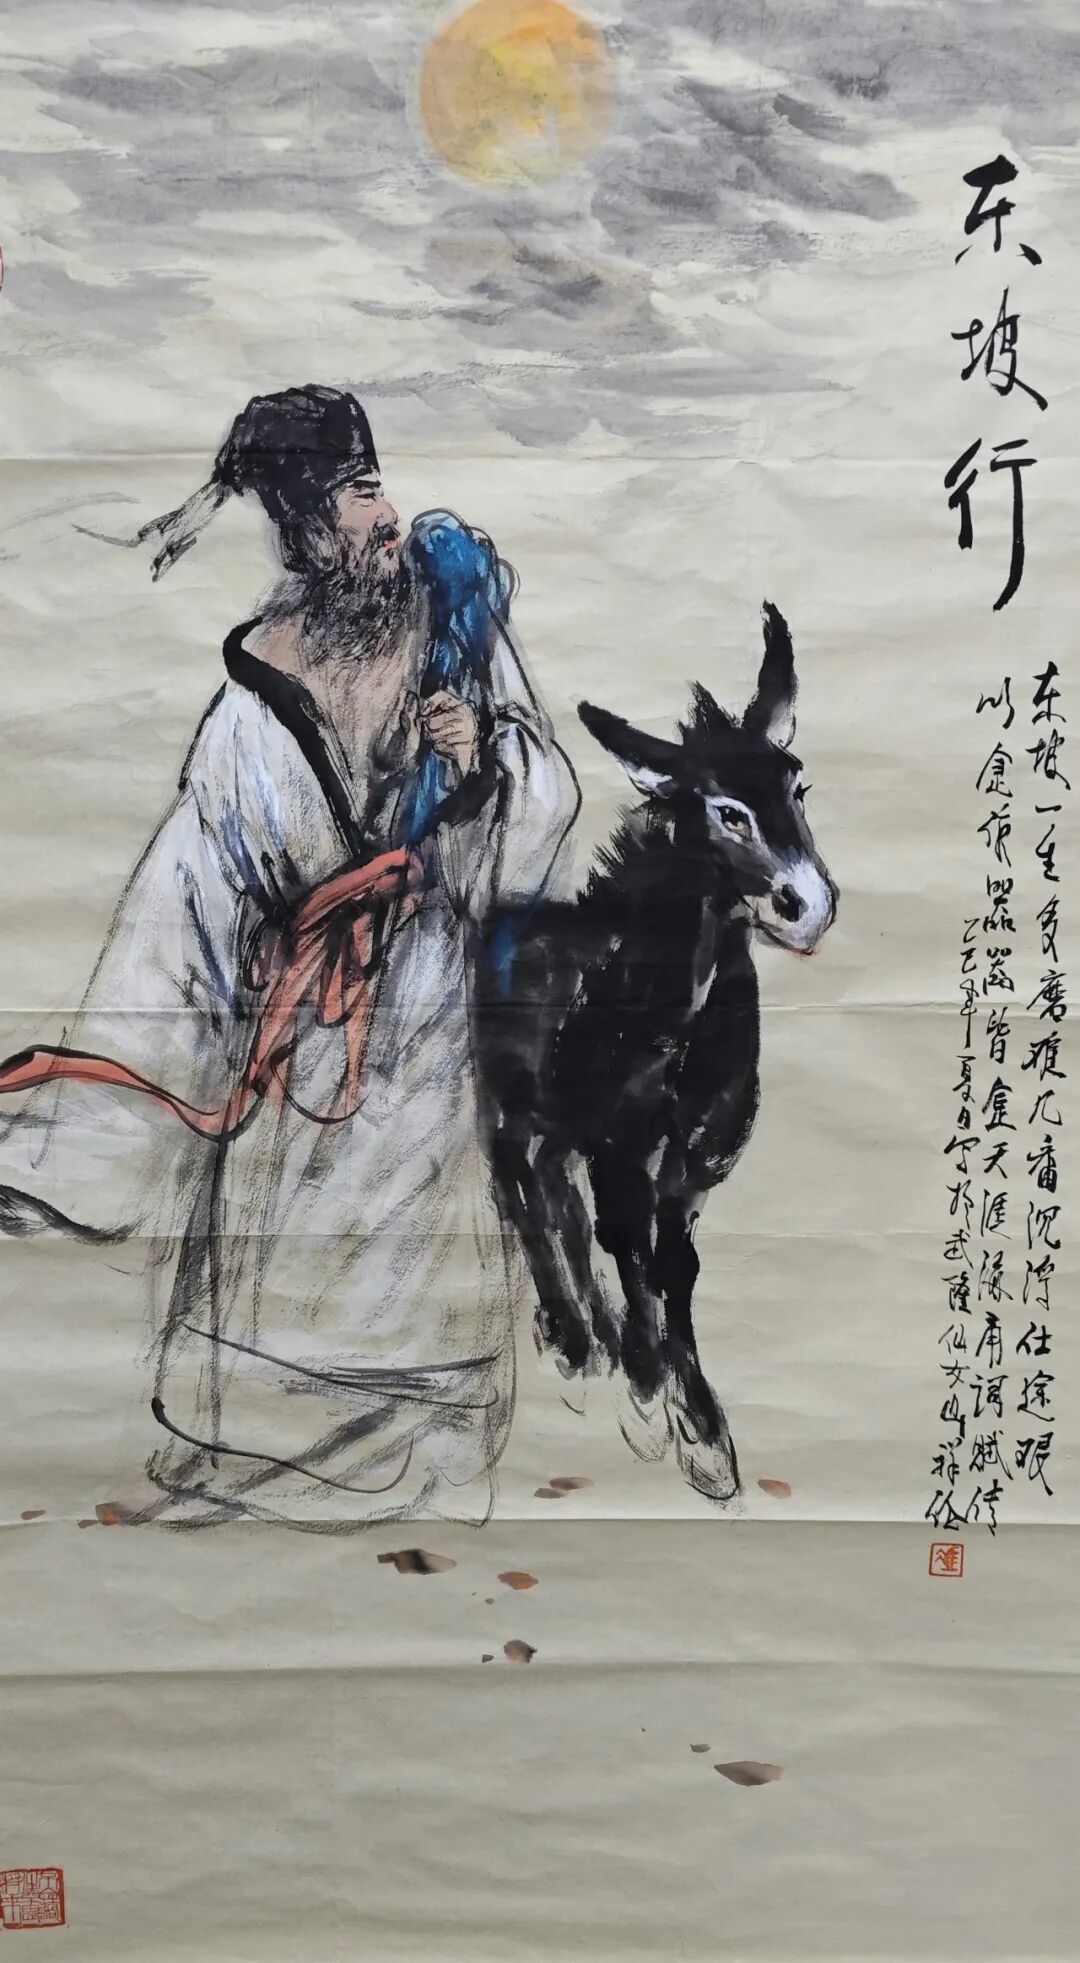 东坡行
东坡一生多磨难几番沉浮仕途艰
以金作器器皆金天涯海角词赋传
乙巳年夏日写于武隆仙女山祥伦